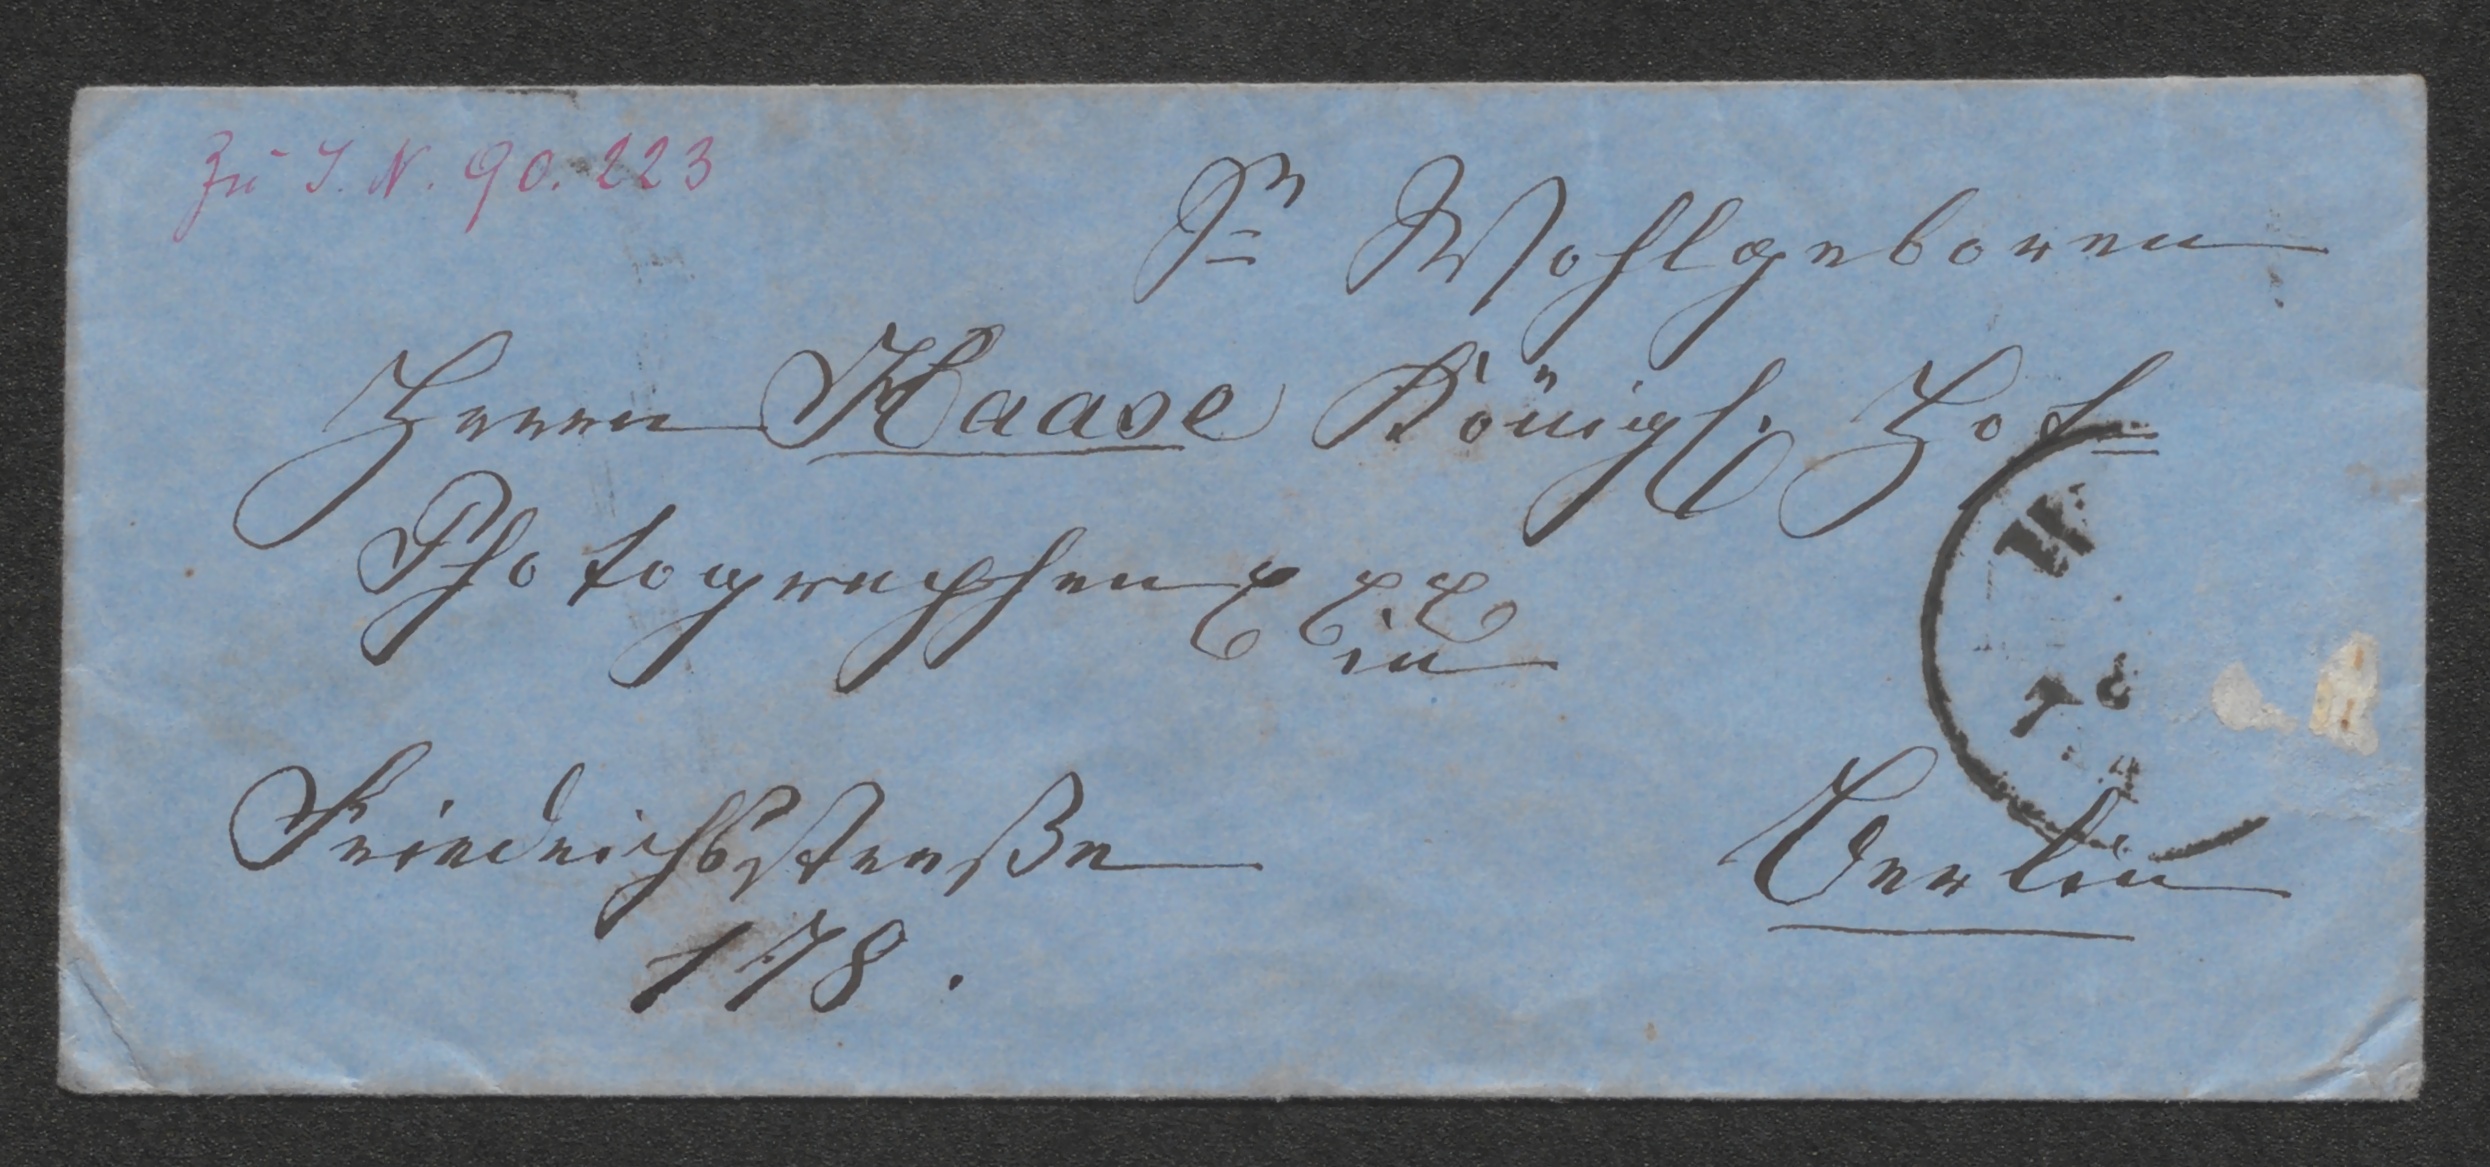 Zu I. N. 90.223
Sr Wohlgeboren
Herrn Haase Königl. Hof=
Photographen
in
Friedrichsstraße
178.
Berlin